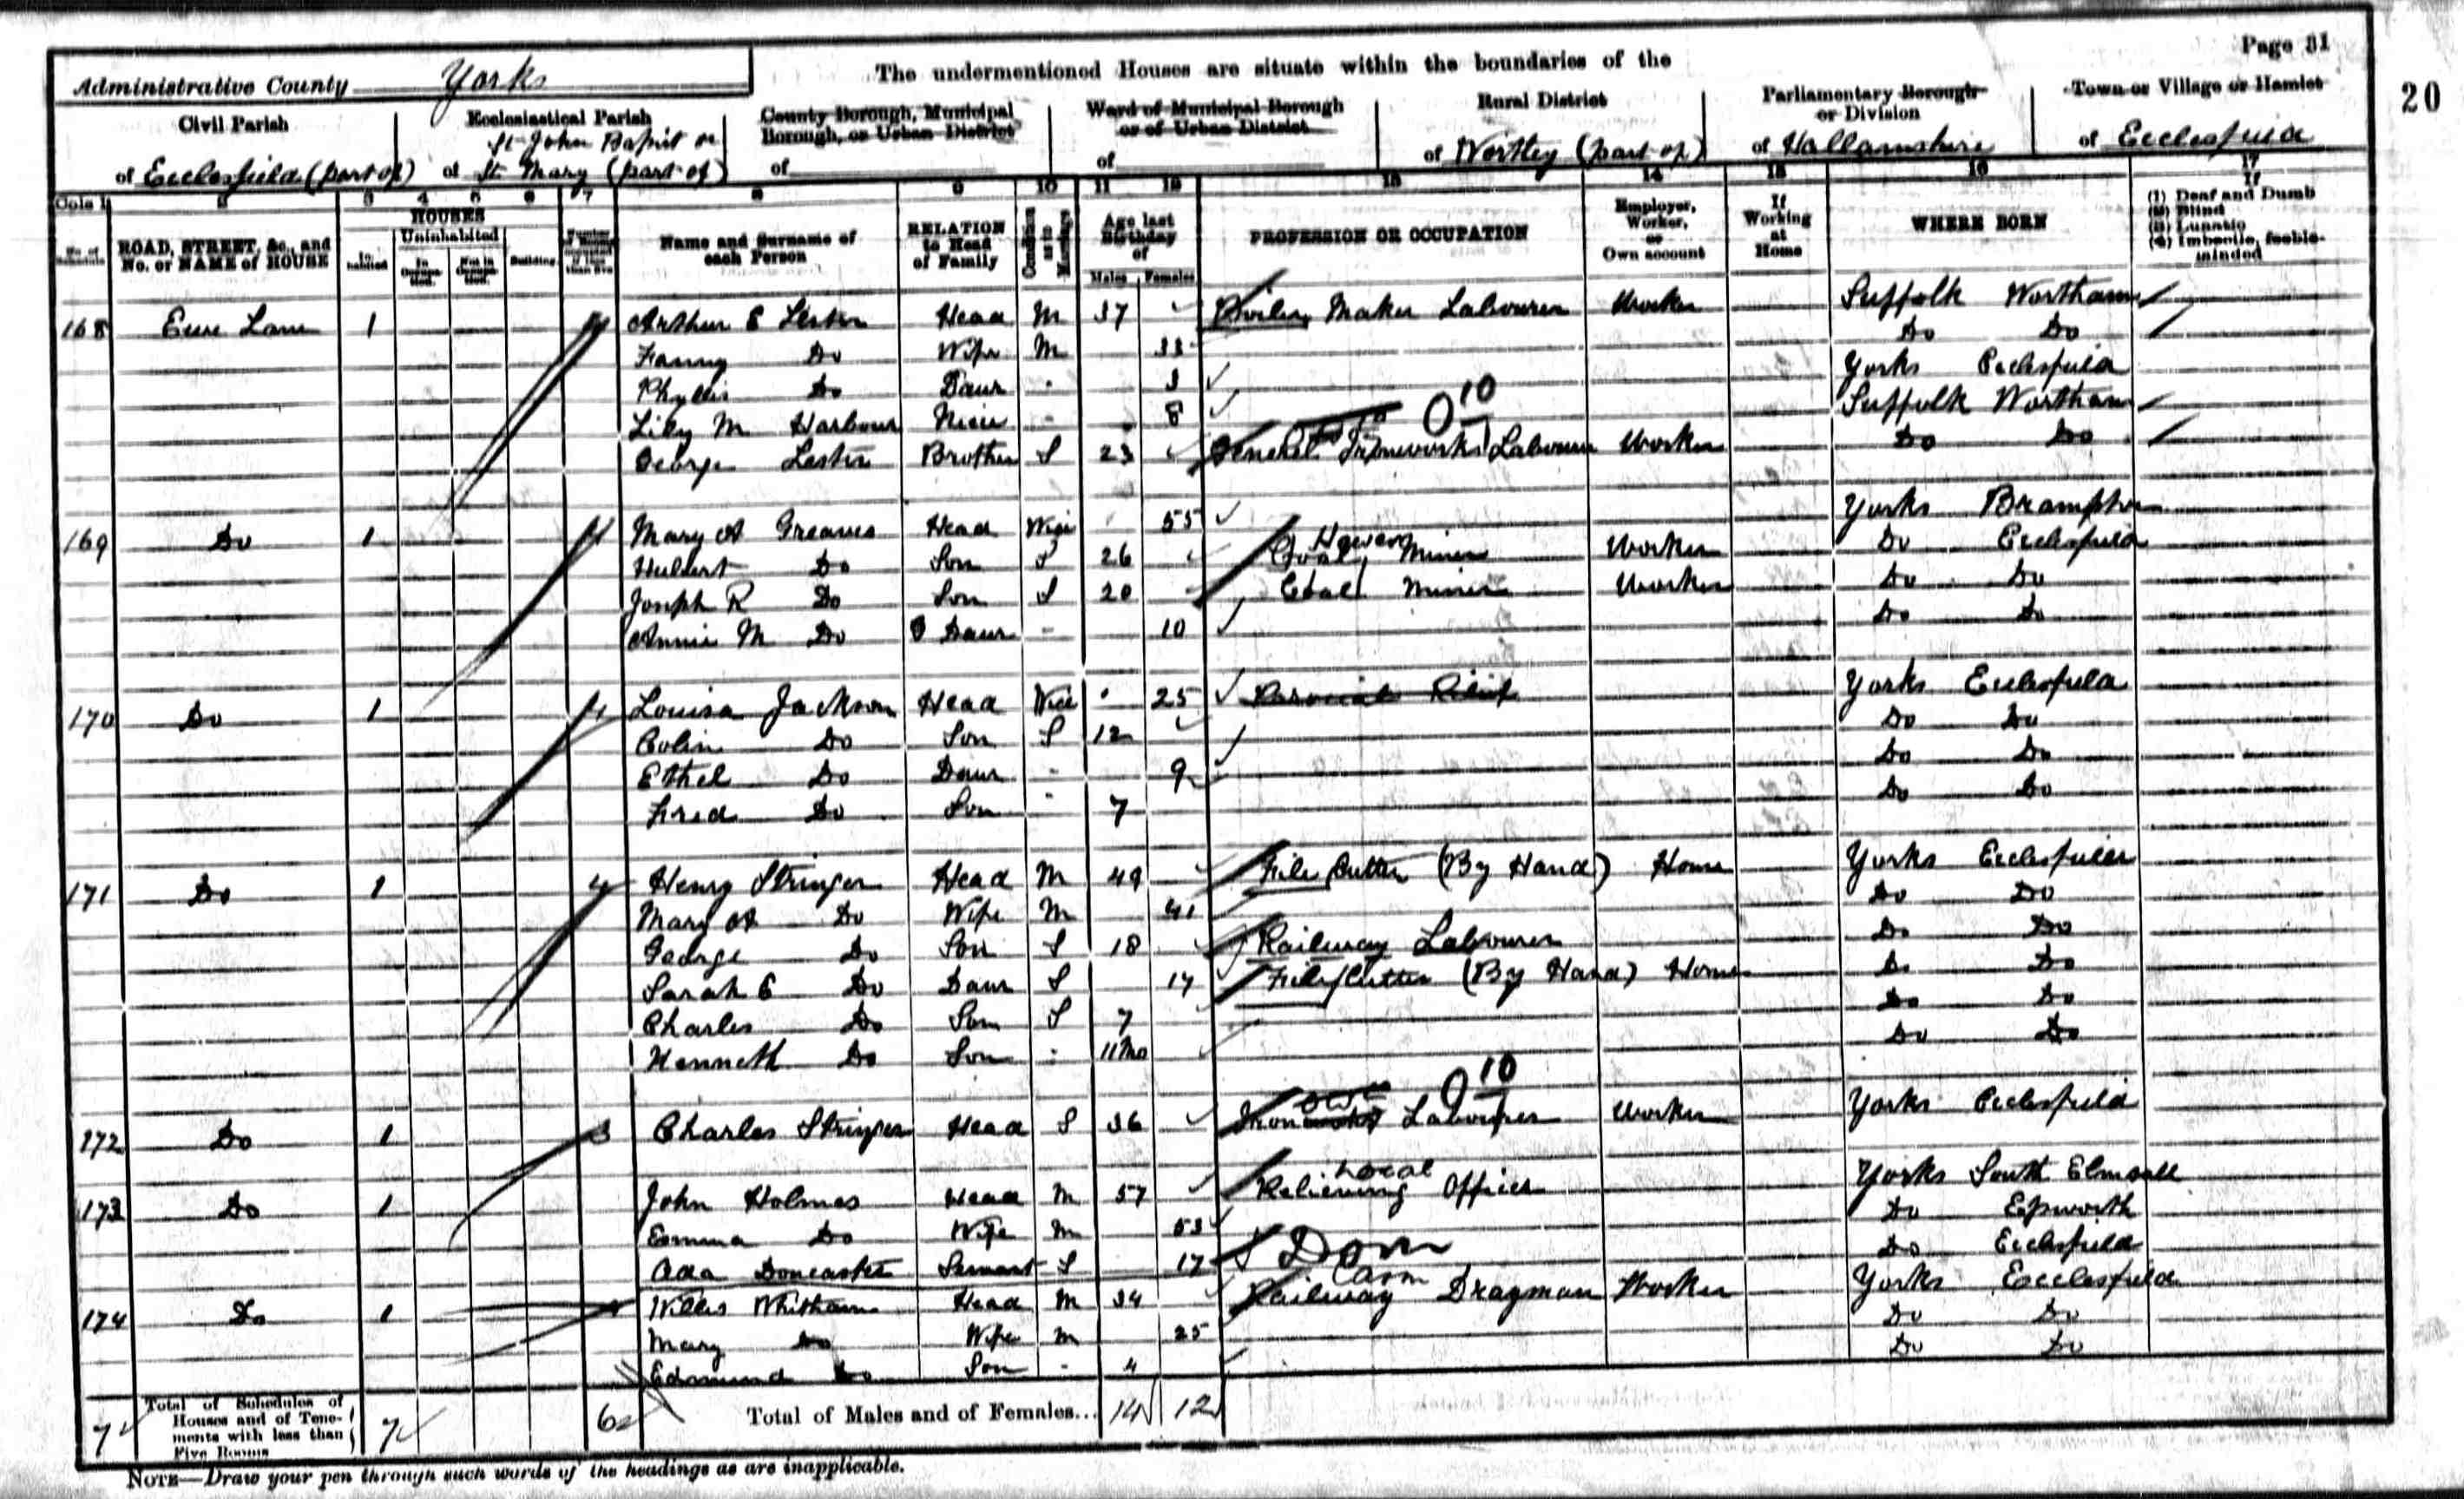 Page 31
20
Administrative County Yorks
The undermentioned Houses are situate within the boundaries of the
Civil Parish
of Ecclesfield (part of)
Ecclesiastical Parish
St John Baptist or
of St Mary (part of)
County Borough, Municipal
Borough, or Urban District
of
Ward of Municipal Borough
or of Urban District
of
Rural District
of Wortley (part of)
Parliamentary Borough
or Division
of Hallamshire
Town or Village or Hamlet
of Ecclesfield
Cols 1 2 3 4 5 6 7 8 9 10 11 12 13 14 15 16 17
No. of Schedule
ROAD, STREET, &c., and
No. or NAME of HOUSE
HOUSES
Inhabited
Uninhabited
In Occupation
Not in Occupation
Building
Name and Surname of
each Person
RELATION
to Head
of Family
Condition as to Marriage
Age last
Birthday
of
Males Females
PROFESSION OR OCCUPATION
Employer,
Worker,
or
Own account
If
Working
at
Home
WHERE BORN
If
(1) Deaf and Dumb
(2) Blind
(3) Lunatic
(4) Imbecile, feeble-
minded
168 Lane 1 4 Arthur E Lester Head M 37 Boiler Maker Labourer Worker Suffolk Wortham
Fanny Do Wife M 33 Do Do
Phyllis Do Daur - 3 Yorks Ecclesfield
Lily M Harbour Niece - 8 Suffolk Wortham
010
George Lester Brother S 23 General Ironworks Labourer Worker Do Do
169 Do 1 4 Mary A Greaves Head Wid 55 Yorks Brampton
Hewer
Hubert Do Son S 26 Coal Miner Worker Do Ecclesfield
Joseph R Do Son S 20 Coal Miner Worker Do Do
Annie M Do Daur - 10 Do Do
170 Do 1 4 Louisa Jackson Head Wid 25 Parochial Relief Yorks Ecclesfield
Colin Do Son S 12 Do Do
Ethel Do Daur - 9 Do Do
Fred Do Son - 7 Do Do
171 Do 1 4 Henry Stringer Head M 49 File Cutter (By Hand) Home Yorks Ecclesfield
Mary A Do Wife M 41 Do Do
George Do Son S 18 Railway Labourer Do Do
Sarah E Do Daur S 17 File Cutter (By Hand) Home Do Do
Charles Do Son S 7 Do Do
Kenneth Do Son - 11 Mo Do Do
010
172 Do 1 3 Charles Stringer Head S 36 Iron Labourer Worker Yorks Ecclesfield
Local
173 Do 1 John Holmes Head M 57 Relieving Officer Yorks South Elmsall
Emma Do Wife M 53 Do Epworth
Ada Doncaster Servant S 17 Dom Do Ecclesfield
174 Do 1 4 Willis Whitham Head M 34 Railway Drayman Worker Yorks Ecclesfield
Mary Do Wife M 25 Do Do
Edmund Do Son - 4 Do Do
7 Total of Schedules of
Houses and of Tene-
ments with less than
Five Rooms
7 6 Total of Males and of Females... 14 12
NOTE—Draw your pen through such words of the headings as are inapplicable.